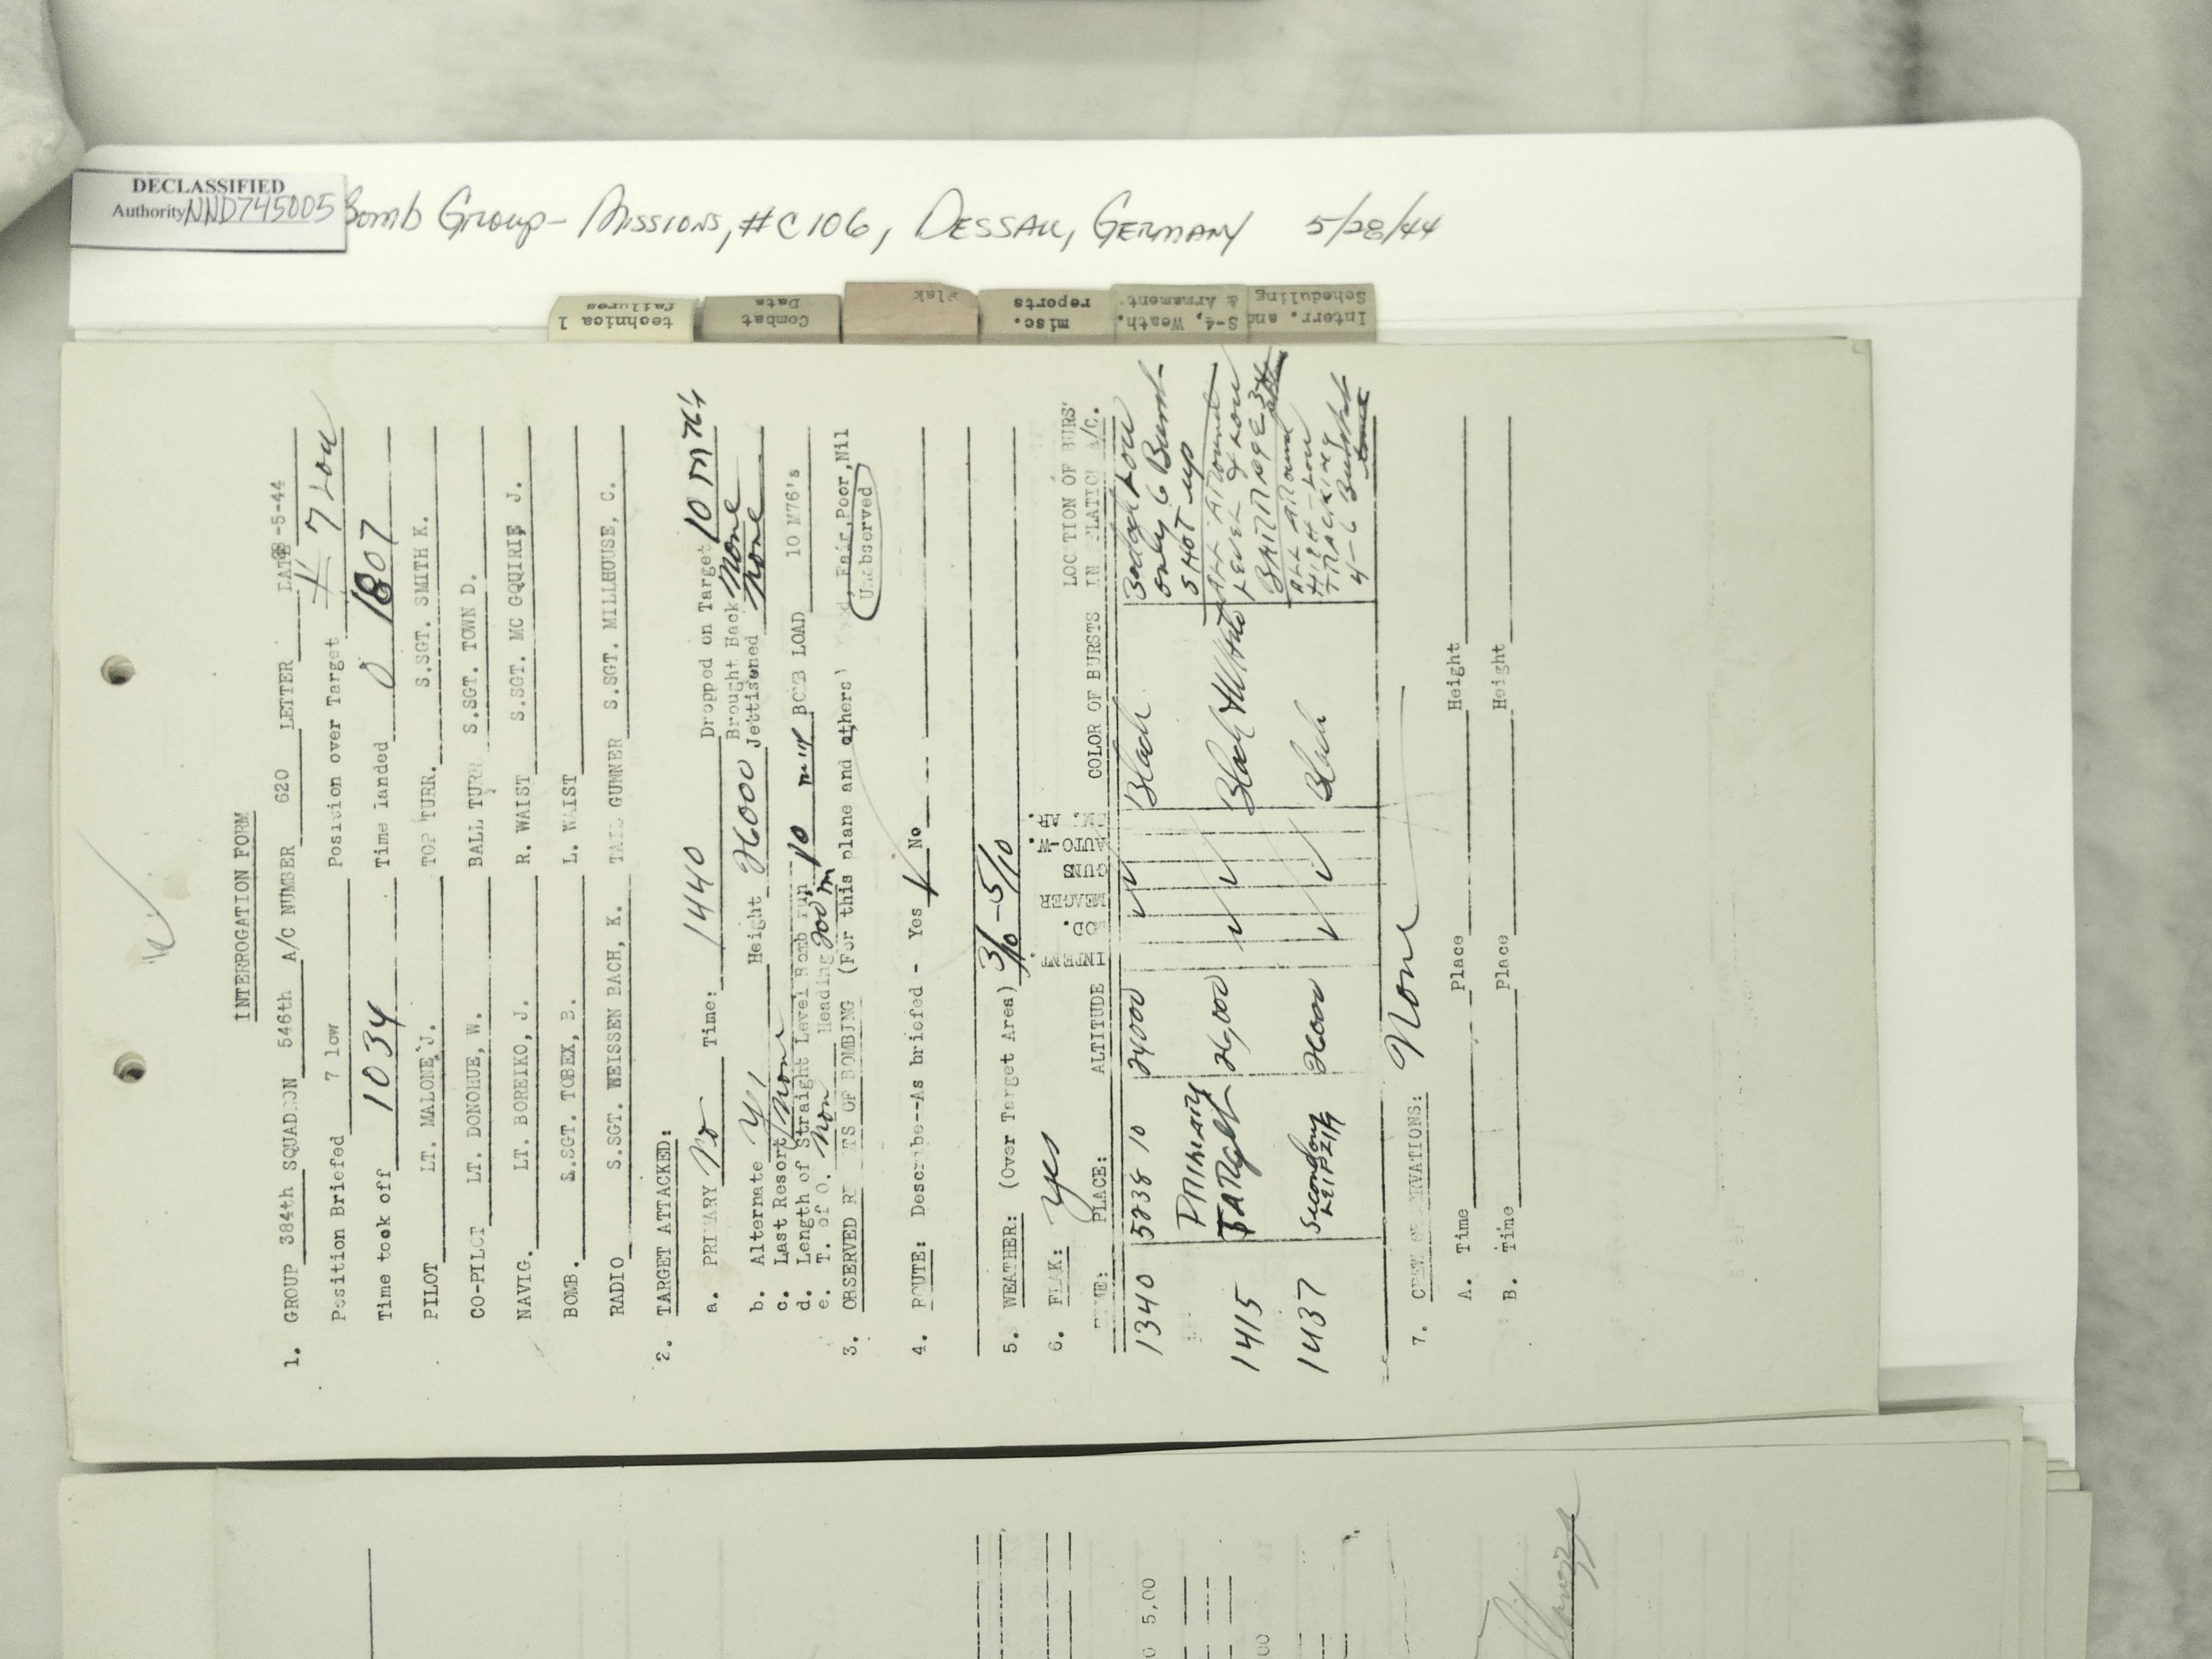 DECLASSIFIED
Authority NND745005
Bomb Group- Missions, #C106, Dessau, Germany 5/28/44
technical failures
Combat Data
Flak
misc. reports
S-4, Weath. & Armament
Interr. and Scheduling
INTERROGATION FORM
1. GROUP 384th SQUADRON 546th A/C NUMBER 620 LETTER DATE -5-44
Position Briefed 7 low Position over Target 7 Low
Time took off 1034 Time landed 1807
PILOT LT. MALONE, J. TOP TURR. S.SGT. SMITH K.
CO-PILOT LT. DONOHUE, W. BALL TURR S.SGT. TOWN D.
NAVIG. LT. BOREIKO, J. R. WAIST S.SGT. MC GQUIRIE J.
BOMB. S.SGT. TOBEX, B. L. WAIST
RADIO S.SGT. WEISSEN BACH, K. TAIL GUNNER S.SGT. MILLHOUSE, C.
2. TARGET ATTACKED:
a. PRIMARY No Time: 1440 Dropped on Target 10 M76's
Brought Back None
b. Alternate Yes Height 26000 Jettisoned None
c. Last Resort None
d. Length of Straight Level Bomb run 10 min BOMB LOAD 10 M76's
e. T. of O. Non Heading 200 m
3. OBSERVED RESULTS OF BOMBING (For this plane and others) Good, Fair, Poor, Nil
Unobserved
4. ROUTE: Describe--As briefed - Yes No
5. WEATHER: (Over Target Area) 3/10 - 5/10
6. FLAK: yes
TIME: PLACE: ALTITUDE INTENT MOD. MEAGER GUNS AUTO-W. COLOR OF BURSTS LOCATION OF BURSTS IN RELATION A/C.
1340 5238 10 24000 Black Low only 6 Burst
SHOT up
1415 PRIMARY TARGET 26,000 Black & White ALL AROUND LEVEL & LOW BARRAGE
1437 Secondary LEIPZIG 26000 Black ALL AROUND HIGH - LOW TRACKING 4-6 Burst
7. CREW OBSERVATIONS: None
A. Time Place Height
B. Time Place Height
5,00
00